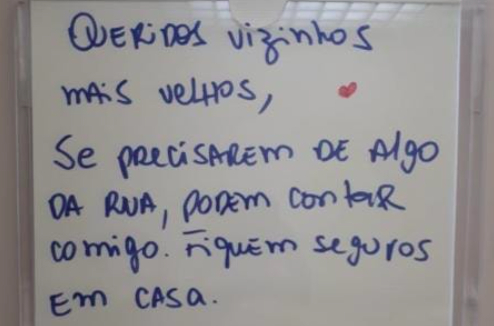 Queridos vizinhos
mais velhos,
Se precisarem de algo
da rua, podem contar
comigo. Fiquem seguros
em casa.